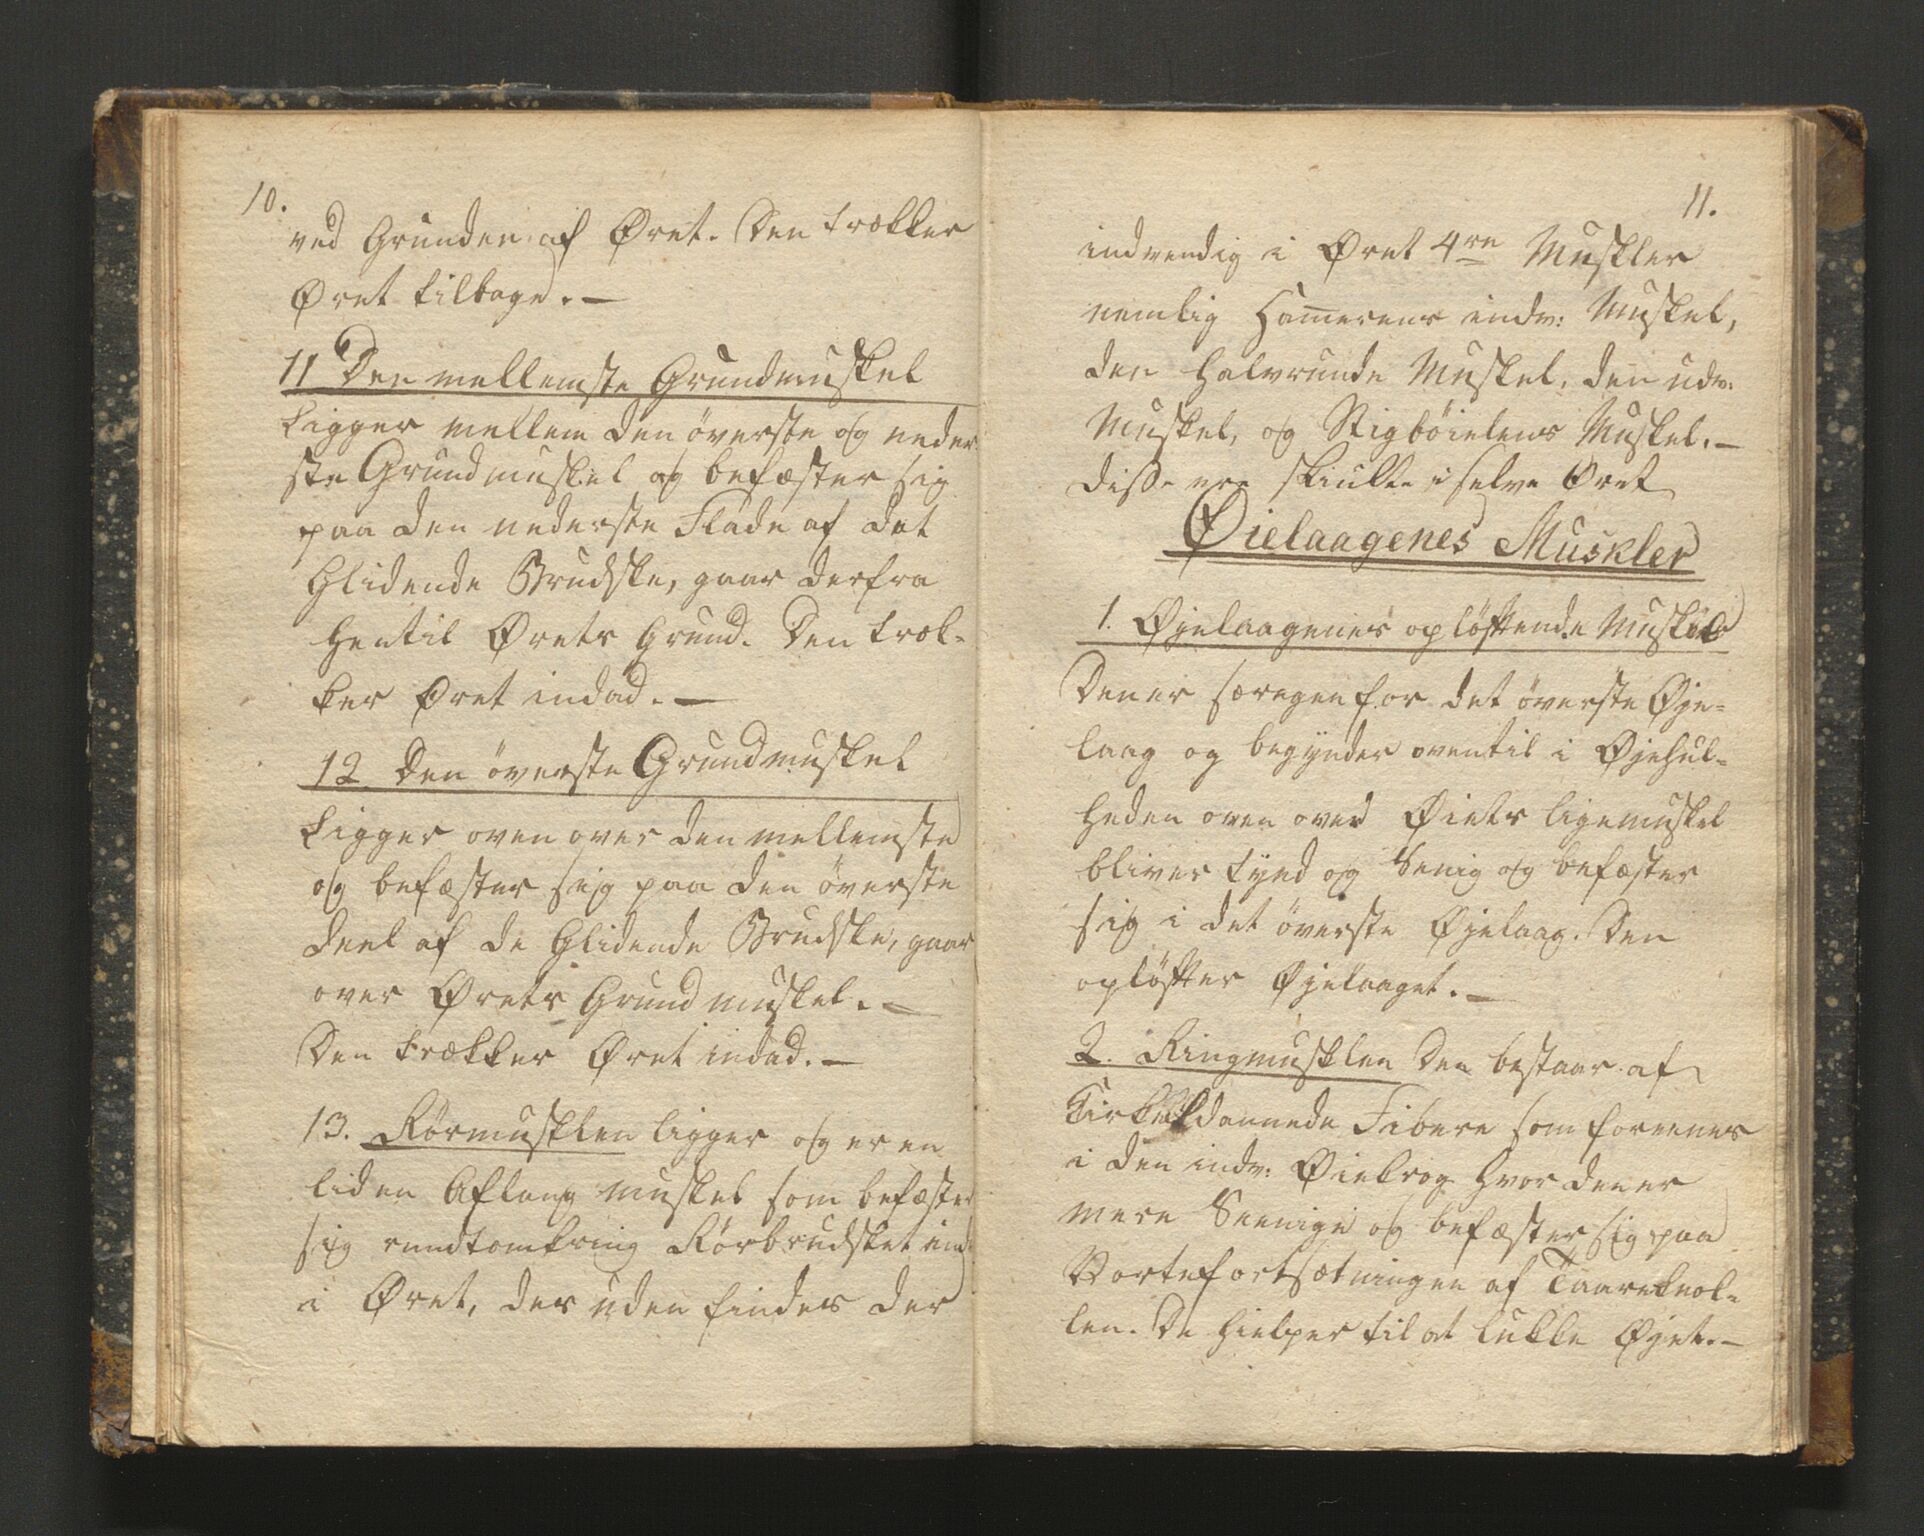 10.
ved Grunden af Øret. Den trækker
Øret tilbage. —
11 Den mellemste Grundmuskel
Ligger mellem den överste og neder
ste Grundmuskel og befæster sig
paa den nederste Flade af det
Glidende Brudske, gaar derfra
hentil Ørets Grund. Den træk-
ker Øret indad. —
12 Den överste Grundmuskel
Ligger oven over den mellemste
og befæster sig paa den överste
Deel af de Glidende Brudske, gaar
over Ørets Grundmuskel. —
Den trækker Øret indad. —
13. Rörmusklen ligger og er en
liden Aflang muskel som befæster
sig rundtomkring Rörbrudsket ind
i Øret, des uden findes der
11.
indvendig i Øret 4re Muskler
nemlig Hamerens indv: Muskel,
den halvrunde Muskel, den udv:
Muskel, og Stigböielens Muskel. —
disse ere skiulte i selve Øret
Øielaagenes Muskler
1. Øjelaagenes oplöftende Muskel
Den er særegen for det överste Øje-
laag og begynder oventil i Øjehul-
heden oven over Øiets ligemuskel
bliver tynd og Senig og befæster
sig i det överste Øjelaag. Den
oplöfter Øjelaaget. —
2. Ringmusklen Den bestaar af
Cirkeldannede Fibere som forenes
i den indv: Øiekrog hvor den er
mere Seenige og befæster sig paa
Vortefortsætningen af Taareknok-
len. De hielper til at lukke Øjet. —